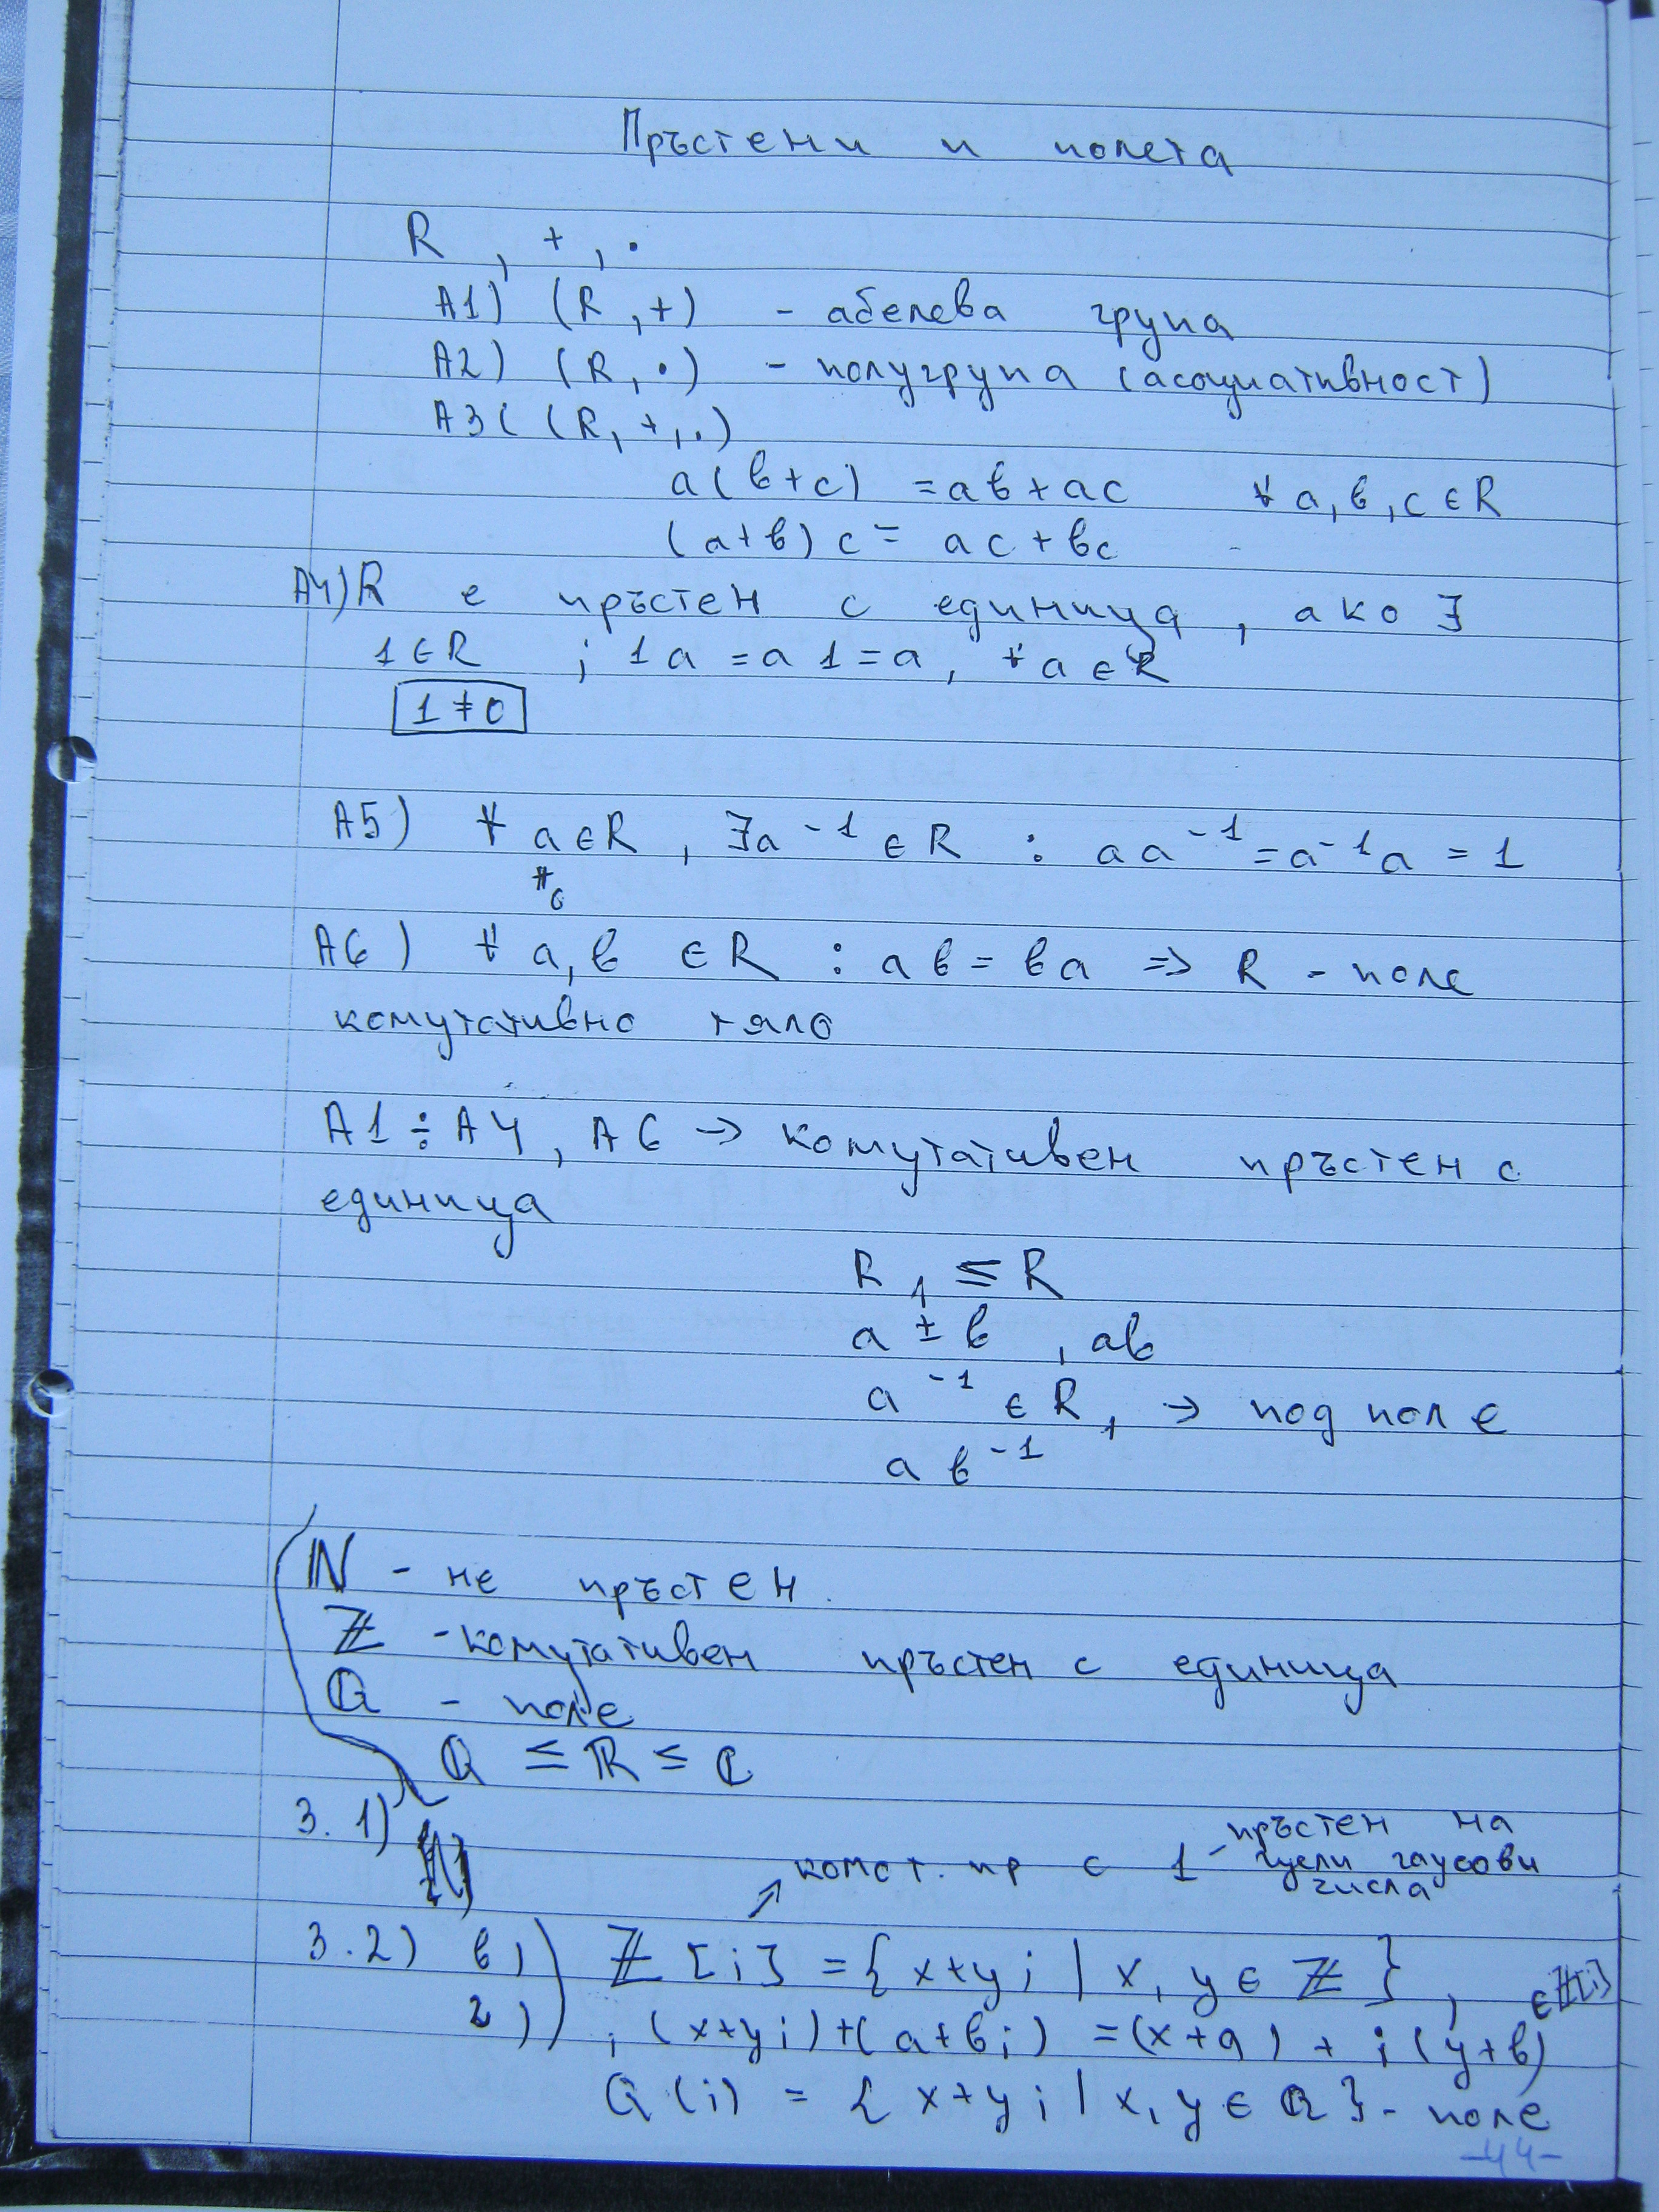 Пръстени и полета
R , + , ·
A1) (R , +) - абелева група
A2) (R , ·) - полугрупа (асоциативност)
A3( (R, +, ·)
a(b+c) = ab+ac ∀ a, b, c ∈ R
(a+b) c = ac + bc
A4) R е пръстен с единица, ако ∃
1 ∈ R ; 1a = a1 = a, ∀ a ∈ R
1 ≠ 0
A5) ∀ a ∈ R, ∃a⁻¹ ∈ R : aa⁻¹ = a⁻¹a = 1
≠ 0
A6) ∀ a, b ∈ R : ab = ba => R - поле
комутативно тяло
A1 ÷ A4, A6 → комутативен пръстен с
единица
R₁ ≤ R
a ± b , ab
a⁻¹ ∈ R₁ → подполе
a b⁻¹
ℕ - не пръстен.
ℤ - комутативен пръстен с единица
ℚ - поле
ℚ ≤ ℝ ≤ ℂ
3. 1)
пръстен на
комст. пр с 1 - цели гаусови
числа
3.2) в) ℤ[i] = {x+yi | x, y ∈ ℤ} , ∈ ℤ[i]
г) ; (x+yi)+(a+bi) = (x+a) + i(y+b)
ℚ(i) = {x+yi | x, y ∈ ℚ} - поле
-44-